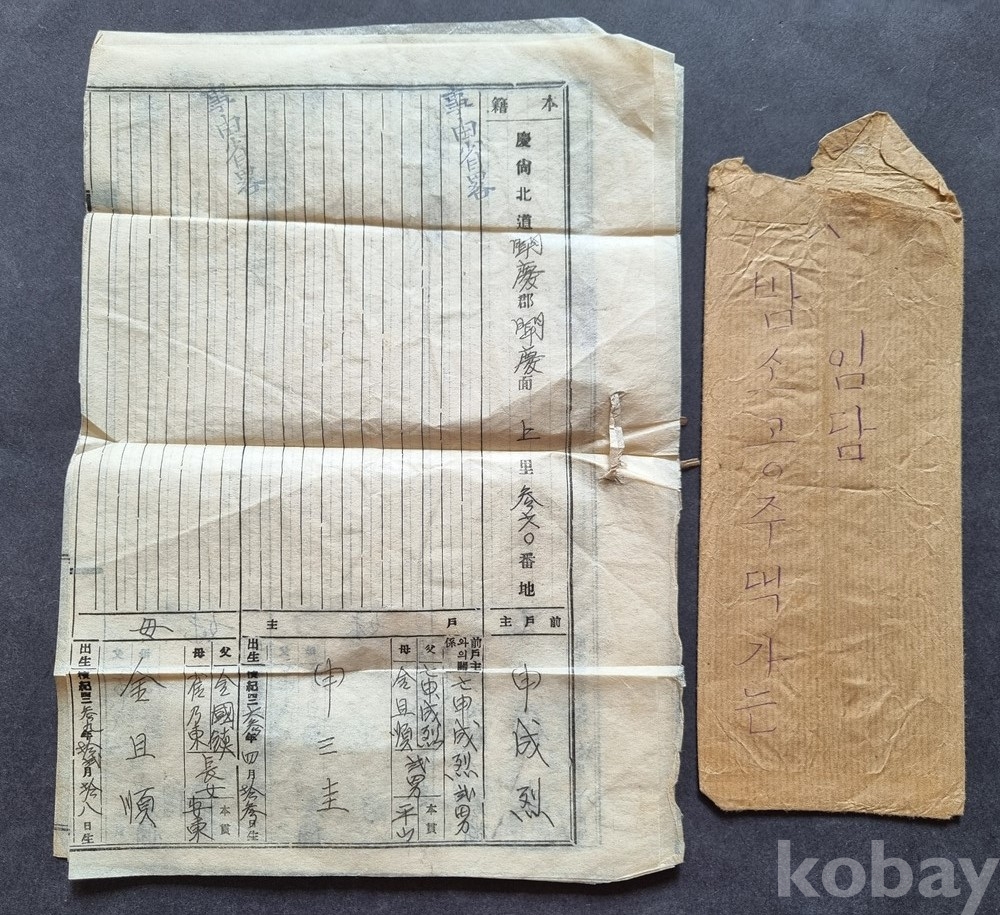 本籍
慶尙北道聞慶郡聞慶面上里參六〇番地
事由省畧
事由省畧
前戶主
申成烈
戶主
前戶主와의關係
亡申成烈貳男
父 亡申成烈
母 金且順
貳男
本貫 平山
申三圭
出生檀紀四二六參年四月拾參日生
母
父 金國鎭
母
長女
本貫 安東
金且順
出生檀紀四二參九年拾貳月拾八日生
임담
밤소공주댁가는
kobay